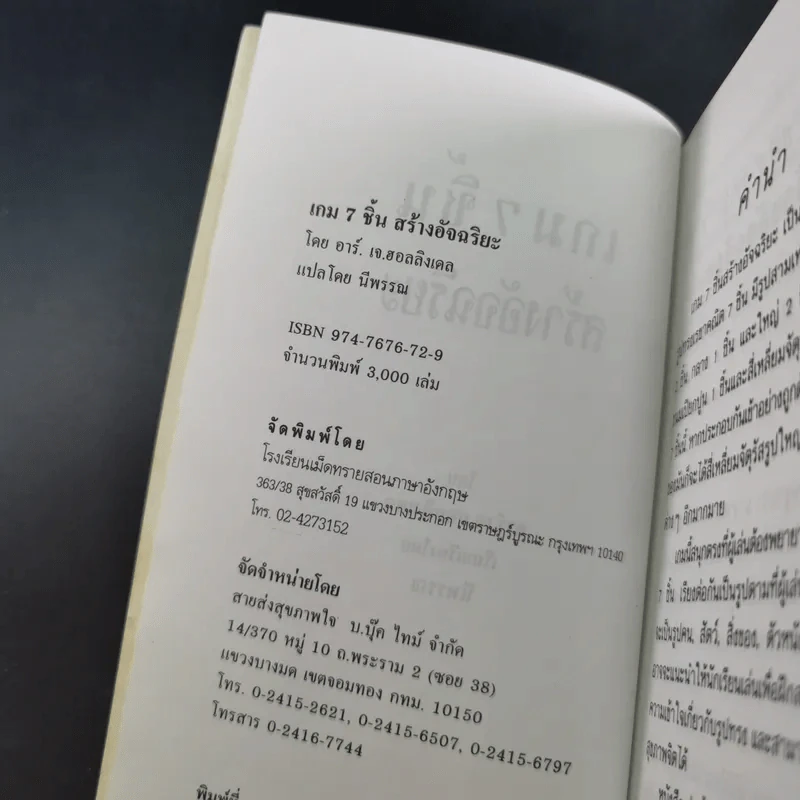 เกม 7 ชิ้น สร้างอัจฉริยะ
โดย อาร์. เจ.ฮอลลิงเดล
แปลโดย นีพรรณ
ISBN 974-7676-72-9
จำนวนพิมพ์ 3,000 เล่ม
จัดพิมพ์โดย
โรงเรียนเม็ดทรายสอนภาษาอังกฤษ
363/38 สุขสวัสดิ์ 19 แขวงบางปะกอก เขตราษฎร์บูรณะ กรุงเทพฯ 10140
โทร. 02-4273152
จัดจำหน่ายโดย
สายส่งสุขภาพใจ บ.บุ๊ค ไทม์ จำกัด
14/370 หมู่ 10 ถ.พระราม 2 (ซอย 38)
แขวงบางมด เขตจอมทอง กทม. 10150
โทร. 0-2415-2621, 0-2415-6507, 0-2415-6797
โทรสาร 0-2416-7744
พิมพ์ที่
คำนำ
เกม 7 ชิ้นสร้างอัจฉริยะ เป็น
รูปทรงเรขาคณิต 7 ชิ้น มีรูปสามเห
ชิ้น กลาง 1 ชิ้น และใหญ่ 2
1 ชิ้นและสี่เหลี่ยมจัตุ
7 ชิ้นนี้ หากประกอบกันเข้าอย่างถูกต้
ของมันก็จะได้สี่เหลี่ยมจัตุรัสรูปใหญ่
ต่างๆ อีกมากมาย
เกมนี้สนุกตรงที่ผู้เล่นต้องพยายา
7 ชิ้น เรียงต่อกันเป็นรูปตามที่ผู้เล่
จะเป็นรูปคน, สัตว์, สิ่งของ, ตัวหนั
อาจจะแนะนำให้นักเรียนเล่นเพื่อฝึกส
ความเข้าใจเกี่ยวกับรูปทรง และสามา
สุขภาพจิตได้